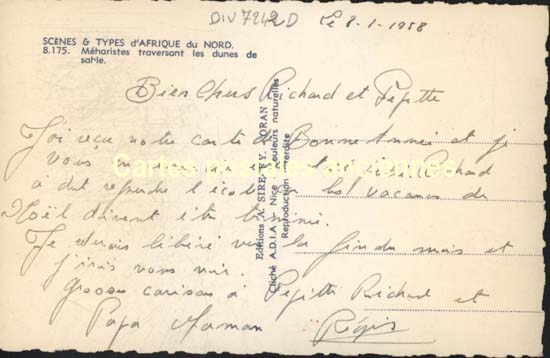 DIV7242D
Le 8-1-1958
SCÈNES & TYPES d'AFRIQUE du NORD.
8.175. Méharistes traversant les dunes de
sable.
Bien Chers Richard et Pépitte
J'ai reçu votre carte de Bonne Année et je
vous en Richard
a dû reprendre l'école les vacances de
Noël doivent être terminé.
Je serais libéré vers la fin du mois et
j'irais vous voir.
Grosses carisses à Pépitte Richard et
Papa Maman Régis
Editions A. SIRECKY. - ORAN
Cliché A.D.I.A. Nice - Couleurs naturelles
Reproduction interdite
Cartes postales anciennes